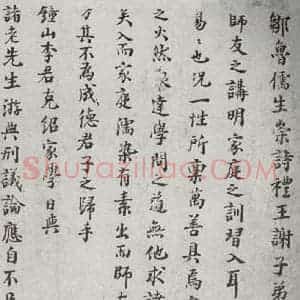 鄒魯儒生崇詩禮王謝子弟
師友之講明家庭之訓習入耳
易也况一性所稟萬善具焉
之火然泉達學問之道無他求諸
矣入而家庭濡染有素出而師友
方其不為成德君子之歸乎
鐘山李君克紹家學日與
諸老先生游典刑議論應自不
Shufazidian.COM